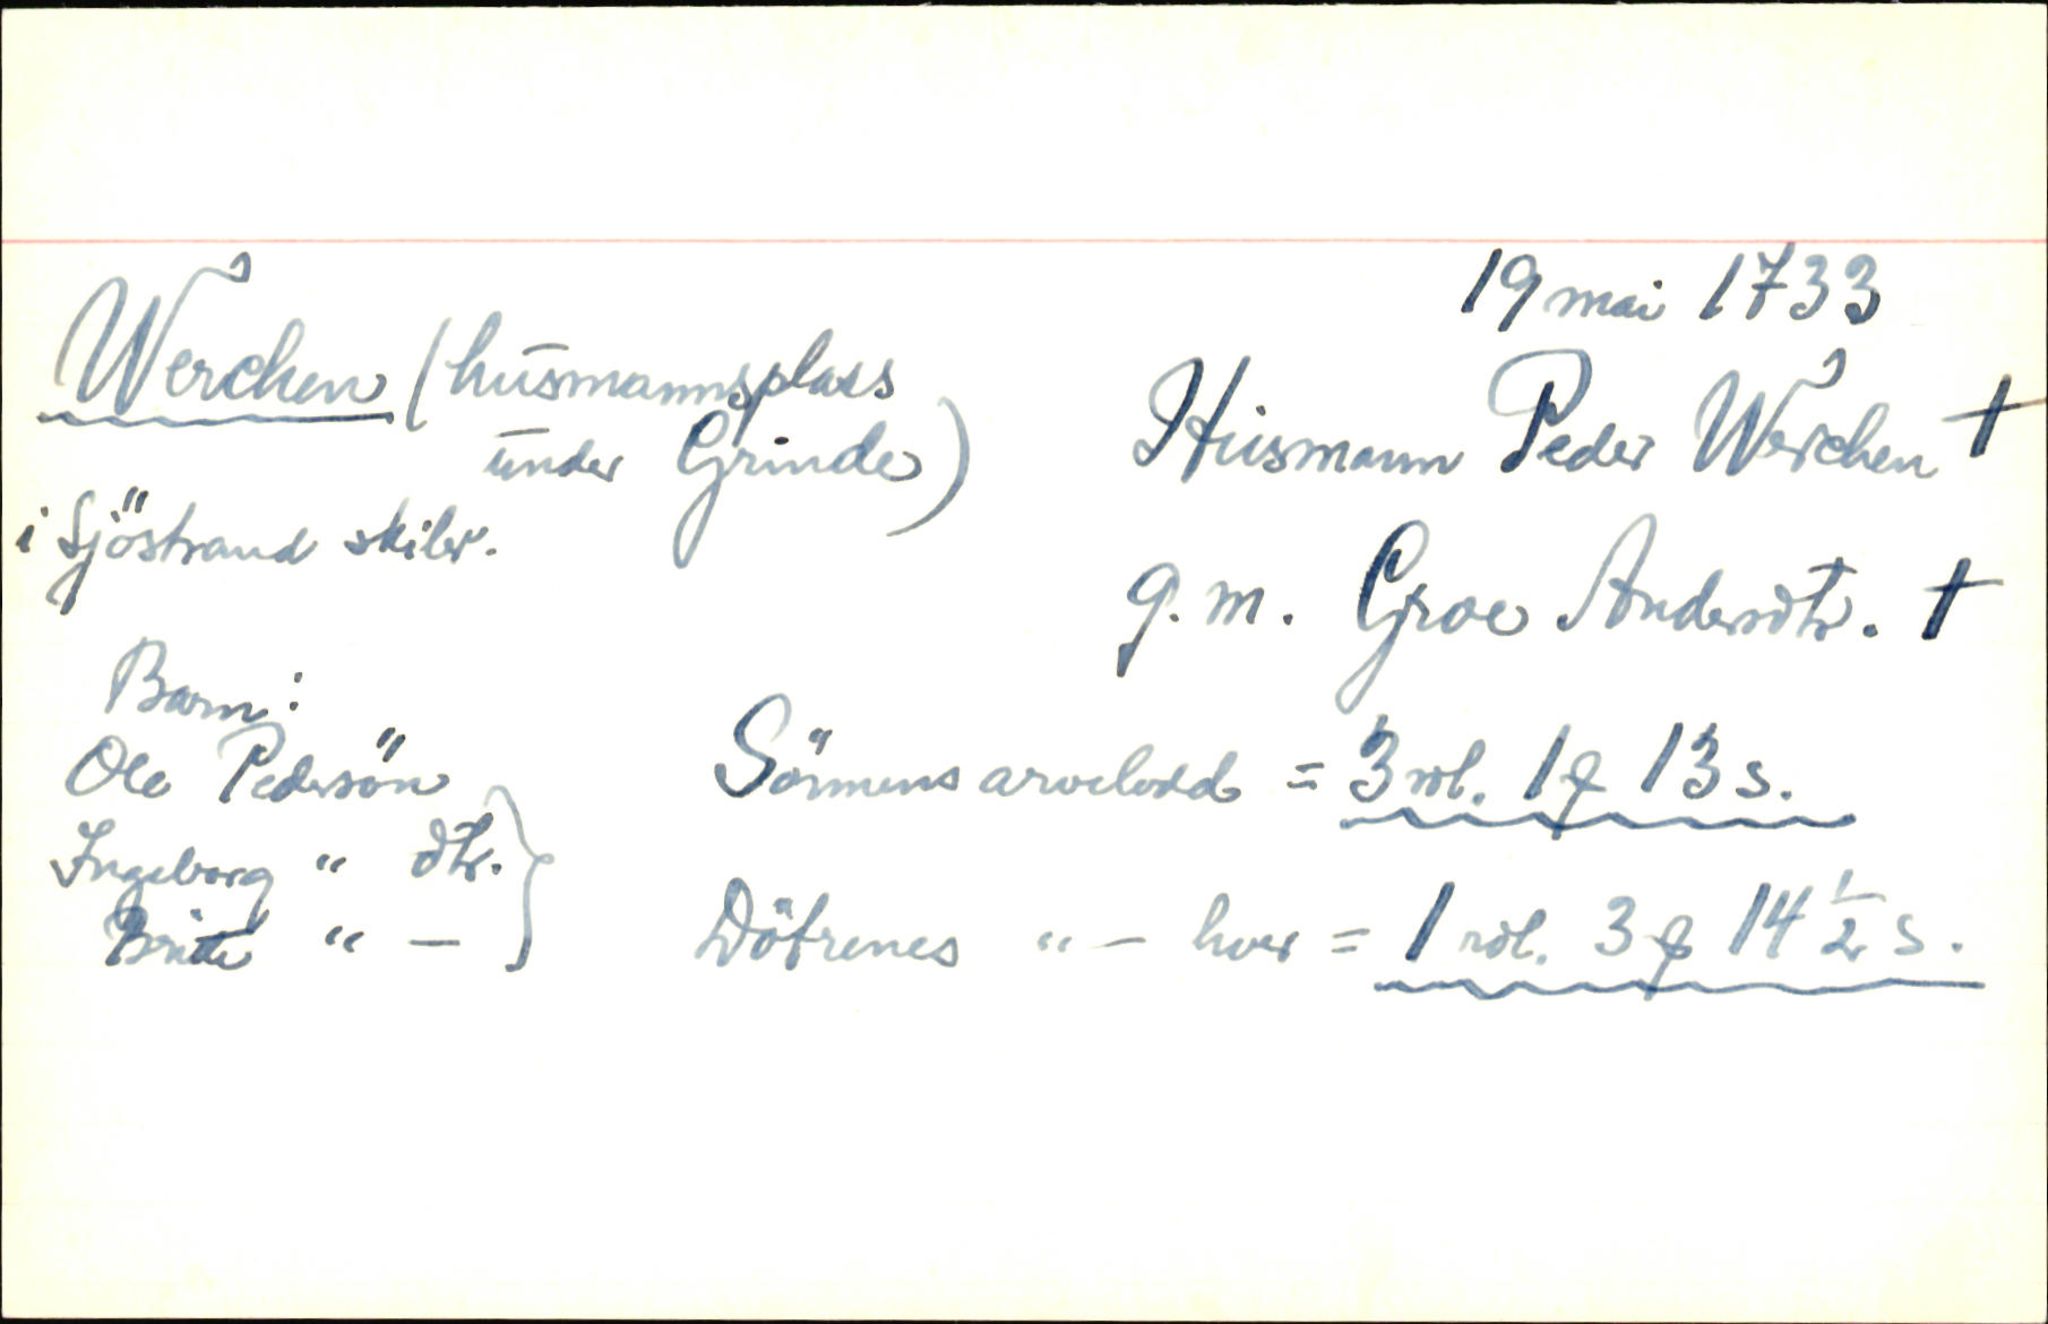 19 mai 1733
Werchen (husmannsplass
under Grinde)
i Sjöstrand skibr.
Husmann Peder Werchen †
g.m. Groe Andersdtr. †
Barn:
Ole Pedersön
Ingeborg " dtr.
Britte " —
Sönnens arvelodd = 3 rdl. 1 ₰ 13 s.
Döfrenes " — hver = 1 rdl. 3 ₰ 14 1/2 s.